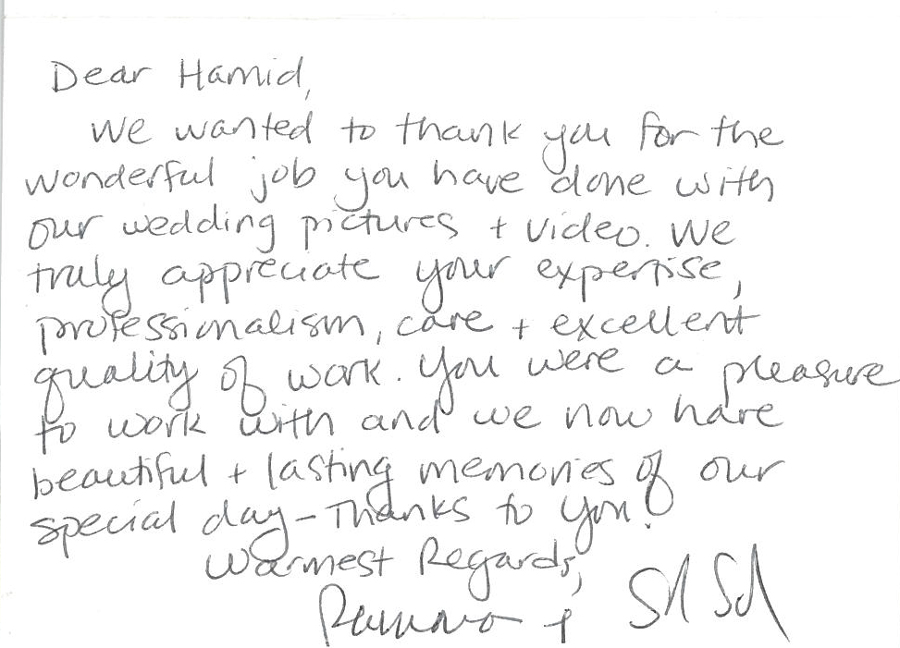 Dear Hamid,
We wanted to thank you for the
wonderful job you have done with
our wedding pictures + video. We
truly appreciate your expertise,
professionalism, care + excellent
quality of work. You were a pleasure
to work with and we now have
beautiful + lasting memories of our
special day - Thanks to you!
Warmest Regards,
+